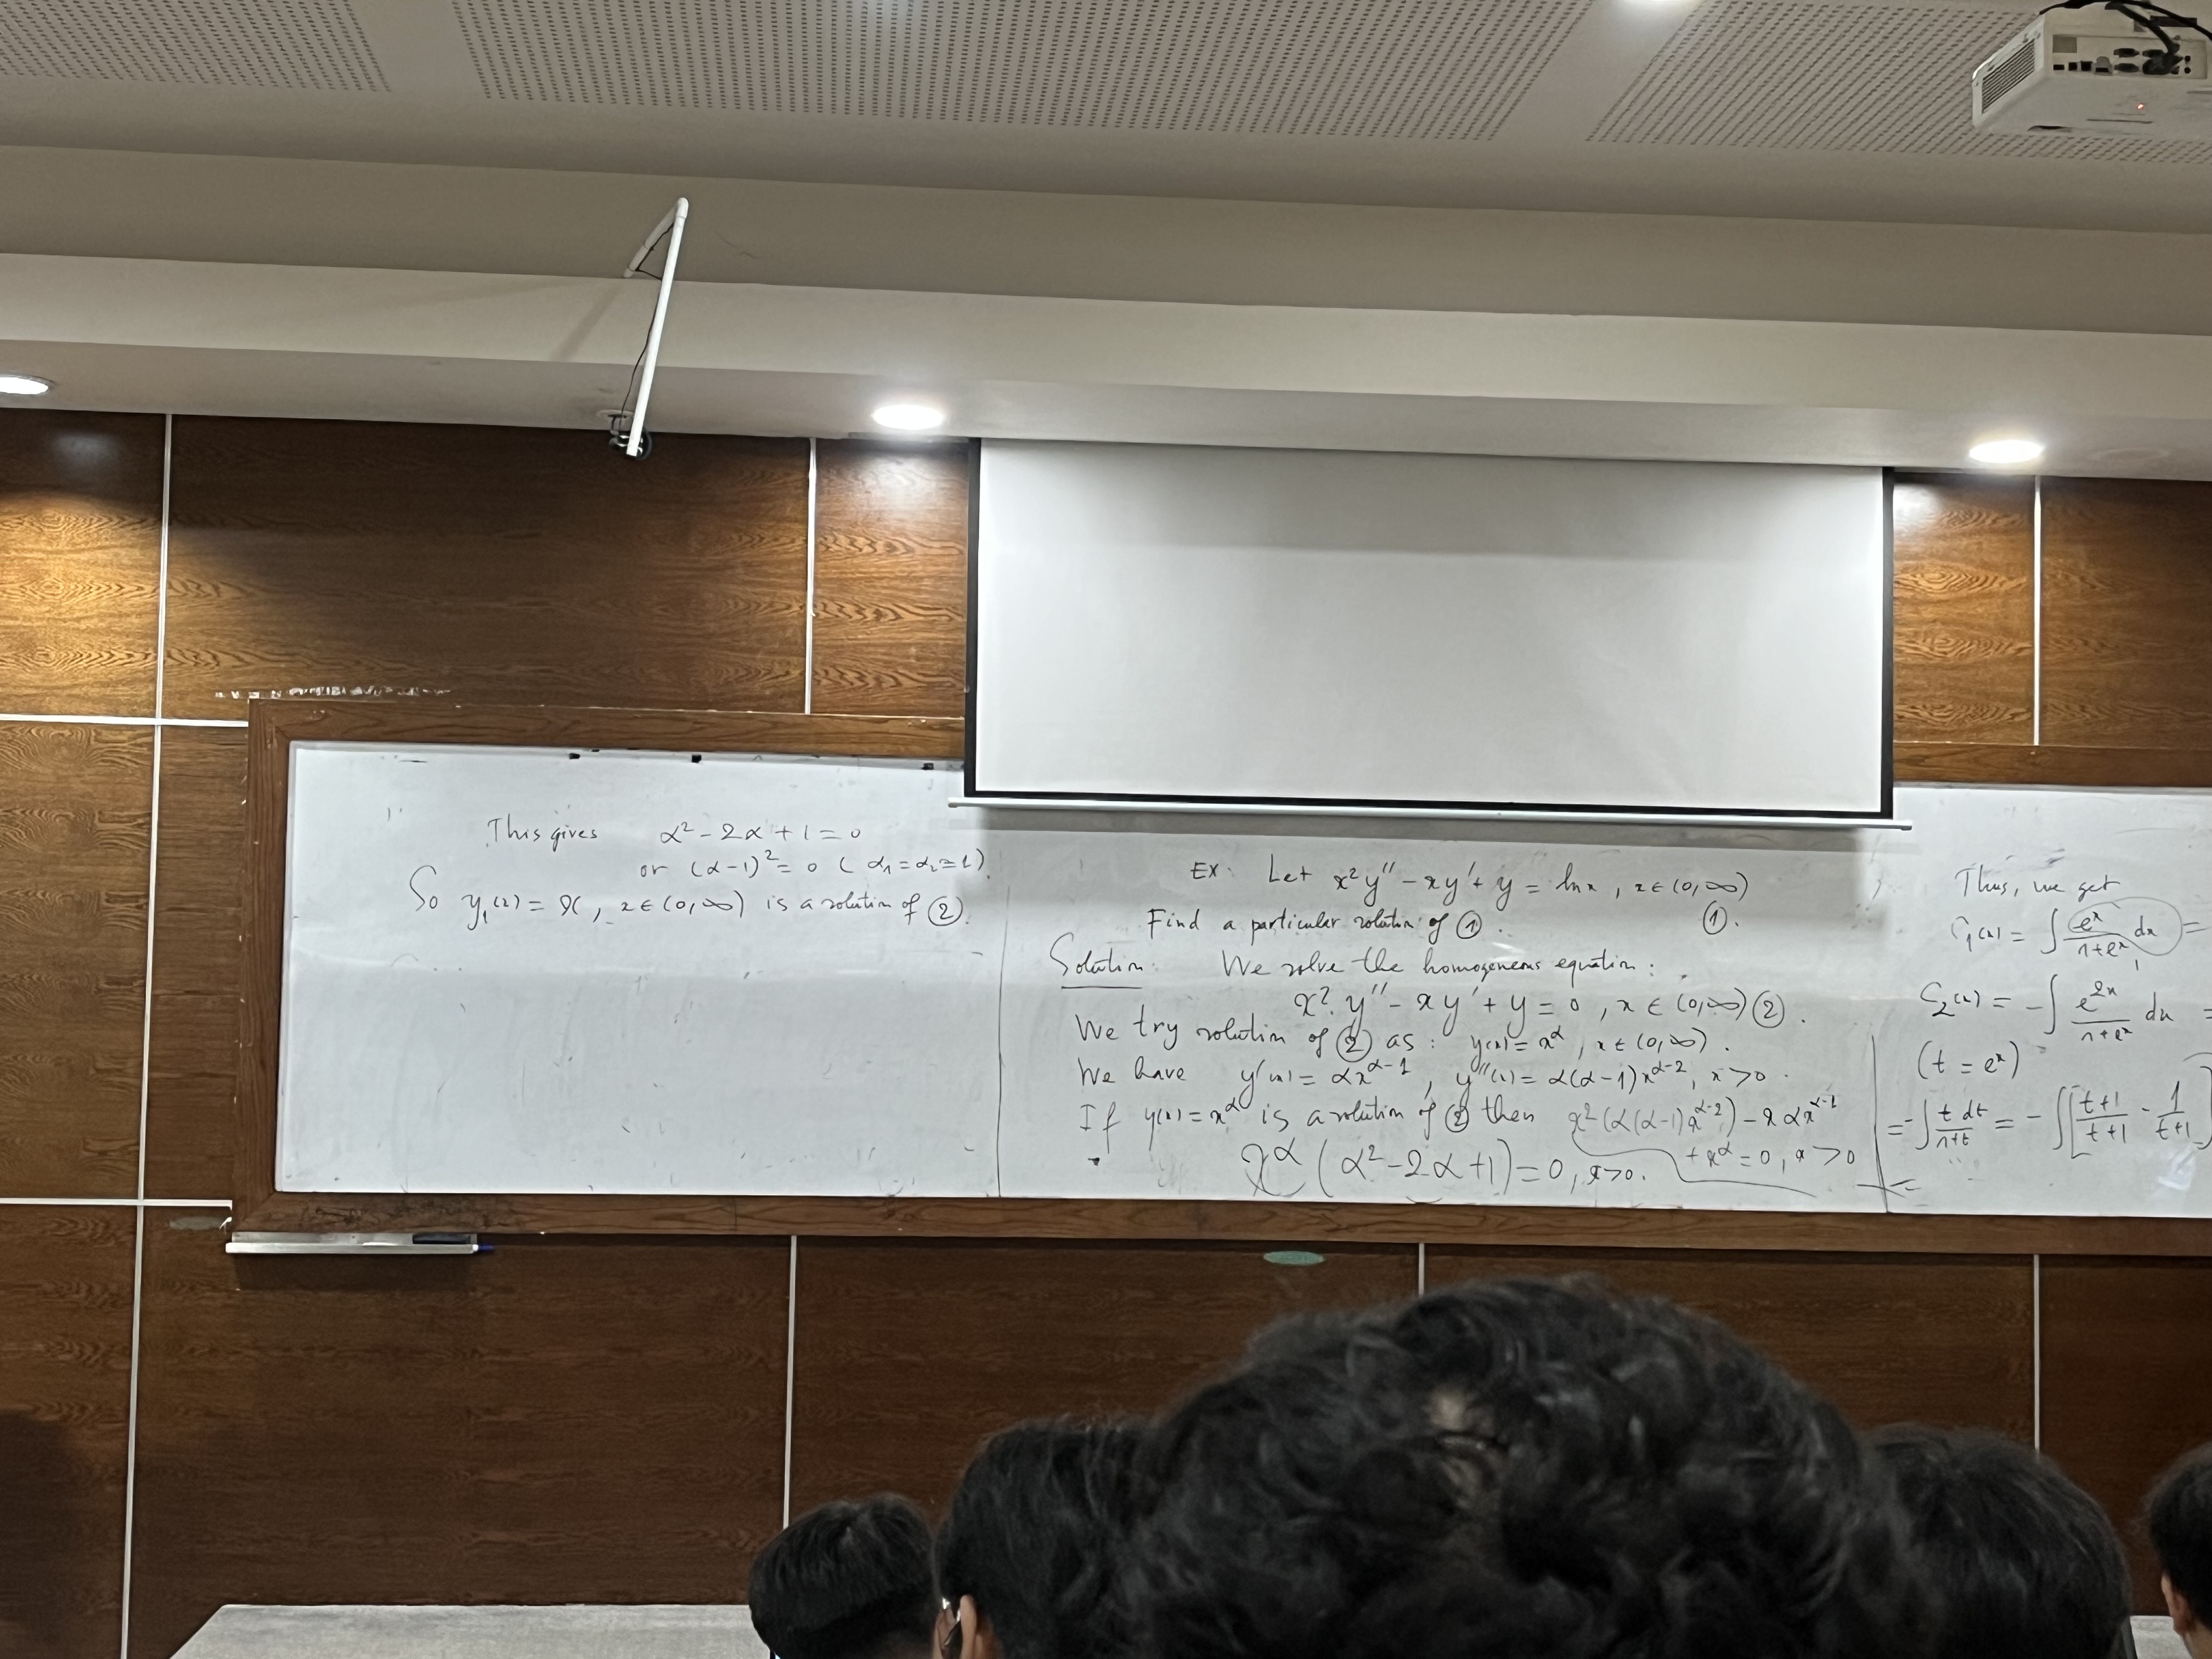 This gives α² - 2α + 1 = 0
or (α-1)² = 0 (α₁ = α₂ = 1).
So y₁(x) = x, x ∈ (0,∞) is a solution of ②.
EX: Let x²y'' - xy' + y = ln x, x ∈ (0,∞)
Find a particular solution of ①. ①.
Solution: We solve the homogeneous equation:
x². y'' - xy' + y = 0, x ∈ (0,∞) ②.
We try solution of ② as: y(x) = x^α, x ∈ (0,∞).
We have y'(x) = αx^(α-1), y''(x) = α(α-1)x^(α-2), x > 0.
If y(x) = x^α is a solution of ② then x²(α(α-1)x^(α-2)) - xαx^(α-1)
+ x^α = 0, x > 0
x^α (α² - 2α + 1) = 0, x > 0.
Thus, we get
C₁(x) = ∫ e^x/(1+e^x) dx =
C₂(x) = -∫ e^(2x)/(1+e^x) dx =
(t = e^x)
= -∫ t dt/(1+t) = -∫[(t+1)/(t+1) - 1/(t+1)]